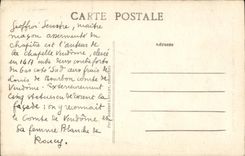 CARTE POSTALE
Geoffroi Sensore, maître
maçon assermenté du
chapitre est l'auteur de
la chapelle Vendôme, élevée
en 1417 entre deux contreforts
du bas côté Sud aux frais de
Louis de Bourbon comte de
Vendôme - Extérieurement
cinq statues décorent la
façade : on y reconnaît
le Comte de Vendôme et
sa femme Blanche de
Roucy.